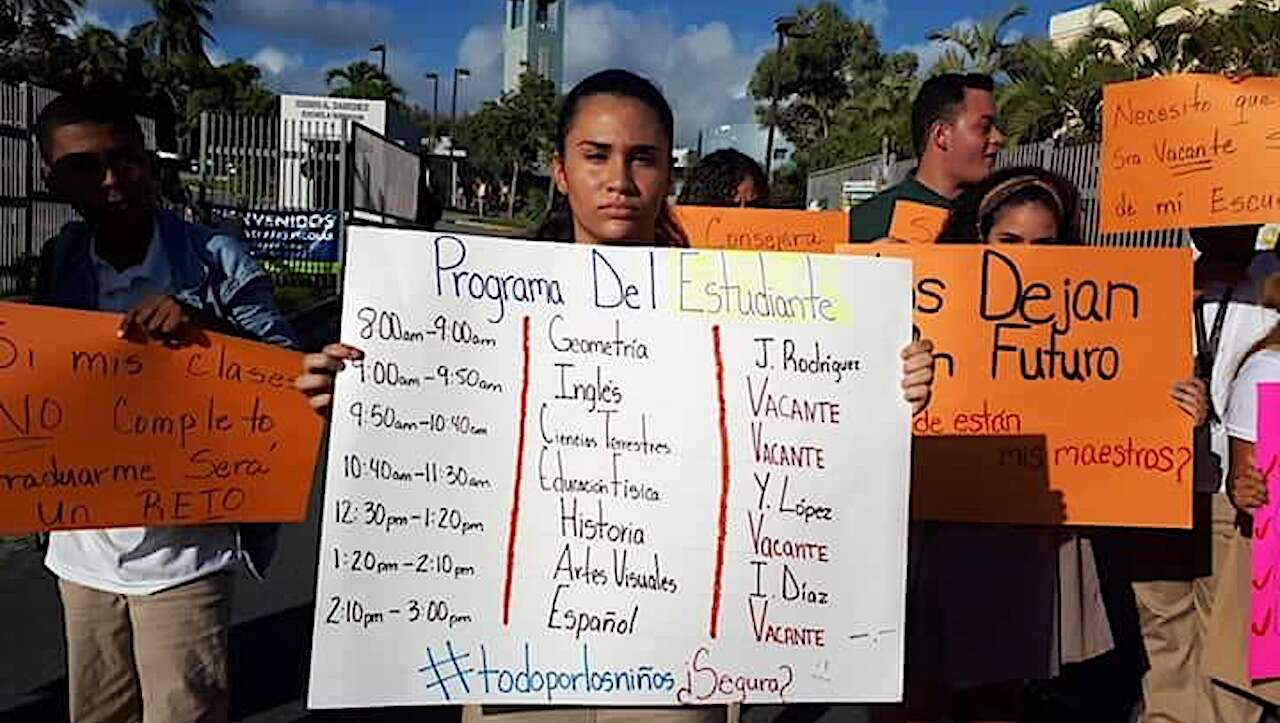 BIENVENIDOS
Programa Del Estudiante
8:00am-9:00am Geometría J. Rodríguez
9:00am-9:50am Inglés VACANTE
9:50am-10:40am Ciencias Terrestres VACANTE
10:40am-11:30am Educación Física Y. López
12:30pm-1:20pm Historia Vacante
1:20pm-2:10pm Artes Visuales I. Díaz
2:10pm-3:00pm Español VACANTE
#todoporlosniños ¿Segura?
Si mis clases
NO Completo
Graduarme Será
Un RETO
Consejera
Dejan
Futuro
de están
mis maestros?
Necesito que
Sra Vacante
de mi Escu